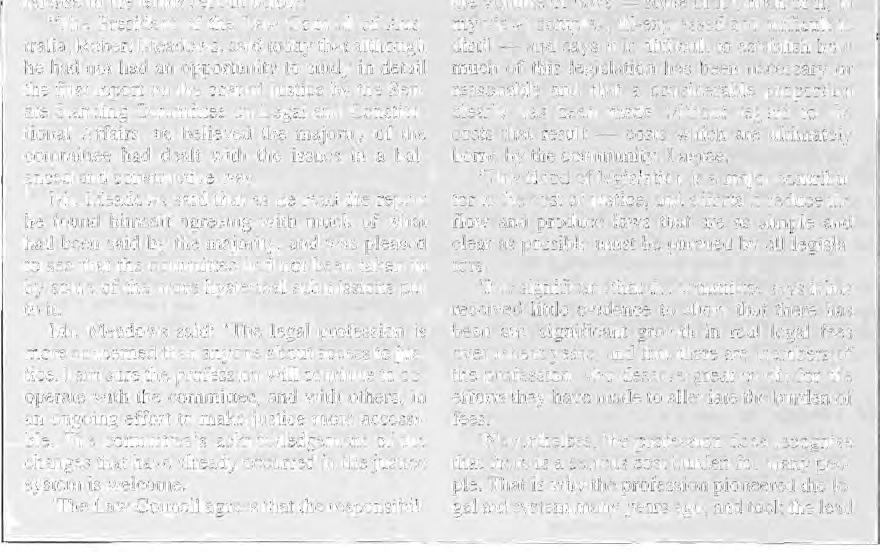 The President of the Law Council of Aus-
tralia, Robert Meadows, said today that although
he had not had an opportunity to study in detail
the first report on the cost of justice by the Sen-
ate Standing Committee on Legal and Constitu-
tional Affairs, he believed the majority of the
committee had dealt with the issues in a bal-
anced and constructive way.
Mr. Meadows said that as he read the report
he found himself agreeing with much of what
had been said by the majority, and was pleased
to see that the committee had not been taken in
by some of the more hysterical submissions put
to it.
Mr. Meadows said: "The legal profession is
more concerned than anyone about access to jus-
tice. I am sure the profession will continue to co-
operate with the committee, and with others, in
an ongoing effort to make justice more accessi-
ble. The committee's acknowledgement of the
changes that have already occurred in the justice
system is welcome.
"The Law Council agrees that the responsibil-
and says it is difficult to establish how
much of this legislation has been necessary or
reasonable and that a considerable proportion
clearly has been made without regard to the
costs that result — costs which are ultimately
borne by the community. I agree.
"This flood of legislation is a major contribu-
tor to the cost of justice, and efforts to reduce the
flow and produce laws that are as simple and
clear as possible must be pursued by all legisla-
tors.
"It is significant that the committee says it has
received little evidence to show that there has
been any significant growth in real legal fees
over recent years, and that there are members of
the profession who deserve great credit for the
efforts they have made to alleviate the burden of
fees.
"Nevertheless, the profession does recognise
that there is a serious cost burden for many peo-
ple. That is why the profession pioneered the le-
gal aid system many years ago, and took the lead